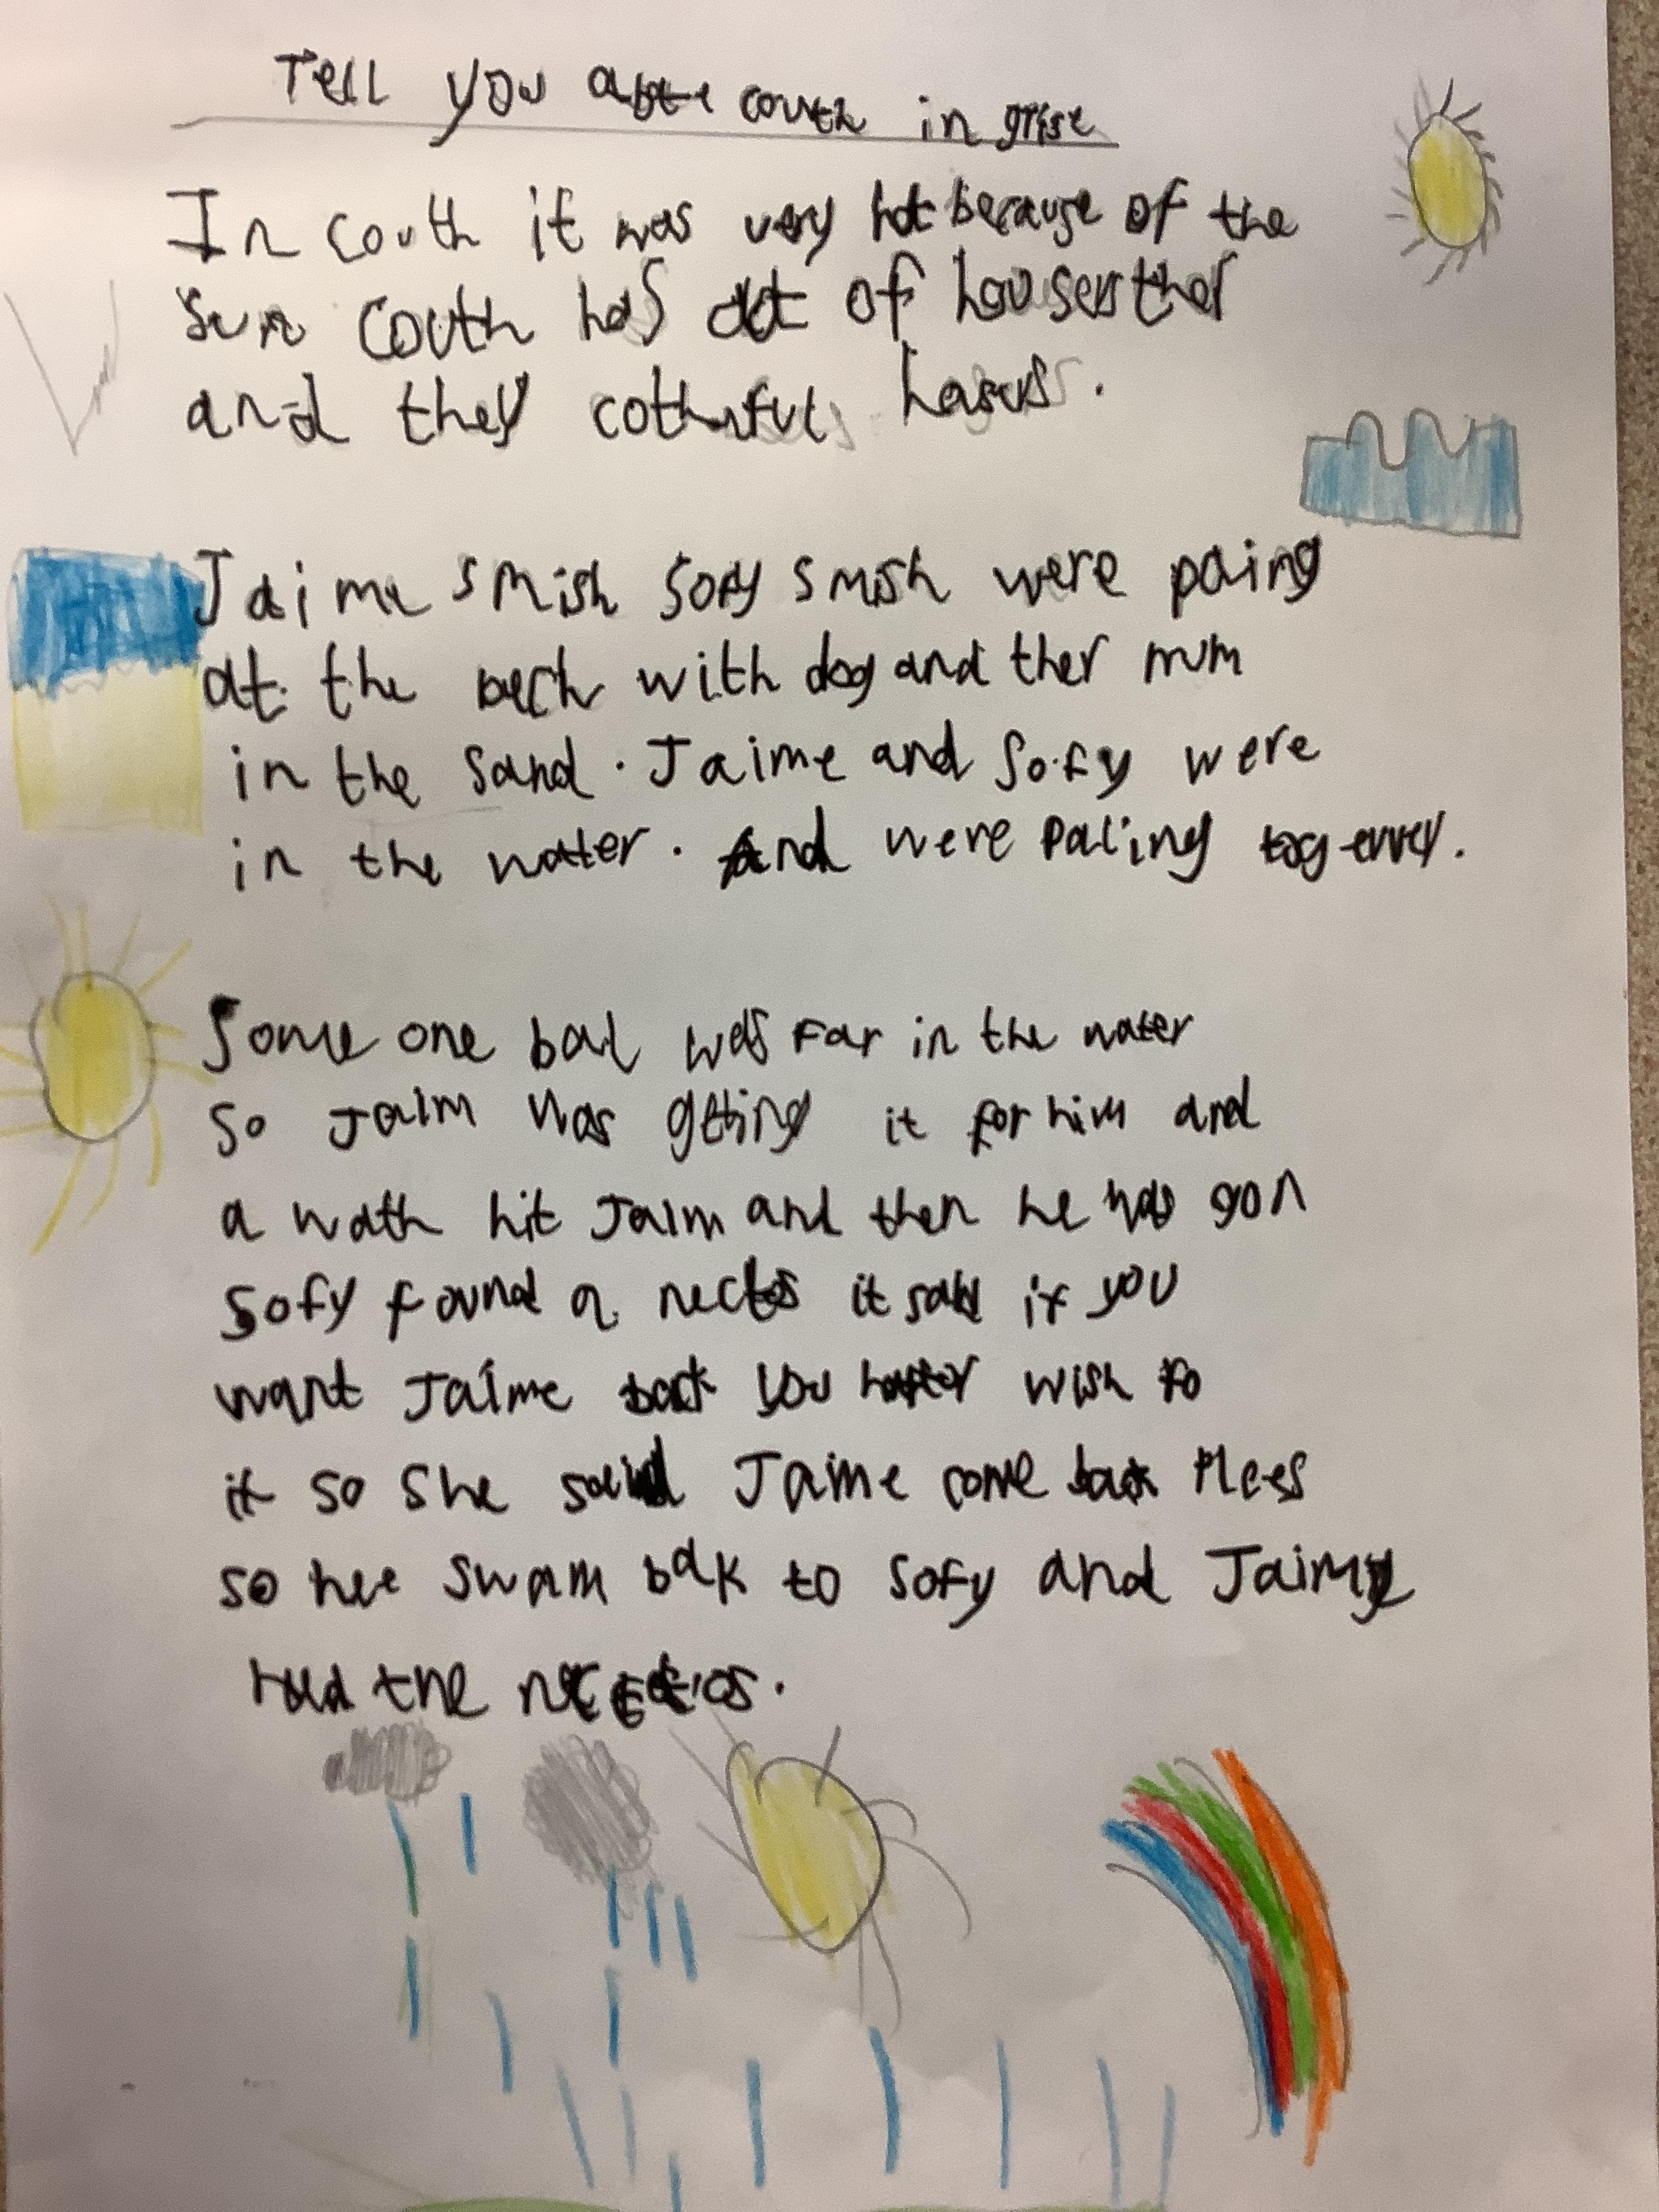 Tell you abte couth in grise
In couth it was very hot because of the
sun couth has alot of houses ther
and they cothufuls
Jaime smish Sofy smish were paing
at the bech with dog and ther mum
in the sand. Jaime and Sofy were
in the water. And were paling togever.
Some one bal was far in the water
so Jaim was getting it for him and
a wath hit Jaim and then he was gon
Sofy found a necles it said if you
want Jaime back you wish to
it so she said Jaime come back Plees
so hee swam bak to Sofy and Jaimye
had the